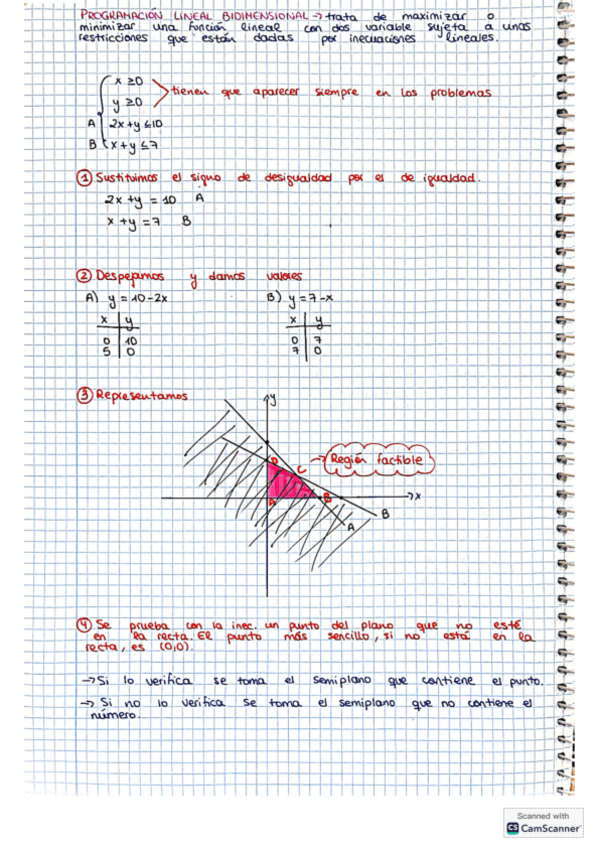 PROGRAMACIÓN LINEAL BIDIMENSIONAL → trata de maximizar o
minimizar una función lineal con dos variable sujeta a unas
restricciones que están dadas por inecuaciones lineales.
x ≥ 0
y ≥ 0
tienen que aparecer siempre en los problemas
A 2x+y ≤ 10
B x+y ≤ 7
① Sustituimos el signo de desigualdad por es de igualdad.
2x+y = 10 A
x+y = 7 B
② Despejamos y damos valores
A) y = 10-2x B) y = 7-x
x y x y
0 10 0 7
5 0 7 0
③ Representamos
y
D
C → Región factible
A B x
B
A
④ Se prueba con la inec. un punto del plano que no esté
en la recta. El punto más sencillo, si no está en la
recta, es (0,0).
→ Si lo verifica se toma el semiplano que contiene el punto.
→ Si no lo verifica se toma el semiplano que no contiene el
número.
Scanned with
CS CamScanner